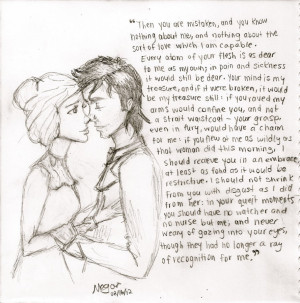 "Then you are mistaken, and you know
nothing about me, and nothing about the
sort of love which I am capable.
Every atom of your flesh is as dear
to me as my own; in pain and sickness
it would still be dear. Your mind is my
treasure, and if it were broken, it would
be my treasure still: if you raved my
arms would confine you, and not
a strait waistcoat - your grasp,
even in fury, would have a charm
for me: if you flew at me as wildly as
that woman did this morning, I
should receive you in an embrace,
at least as fond as it would be
restrictive. I should not shrink
from you with disgust as I did
from her: in your quiet moments
you should have no watcher and
no nurse but me; and never
weary of gazing into your eyes,
though they had no longer a ray
of recognition for me."
Negar